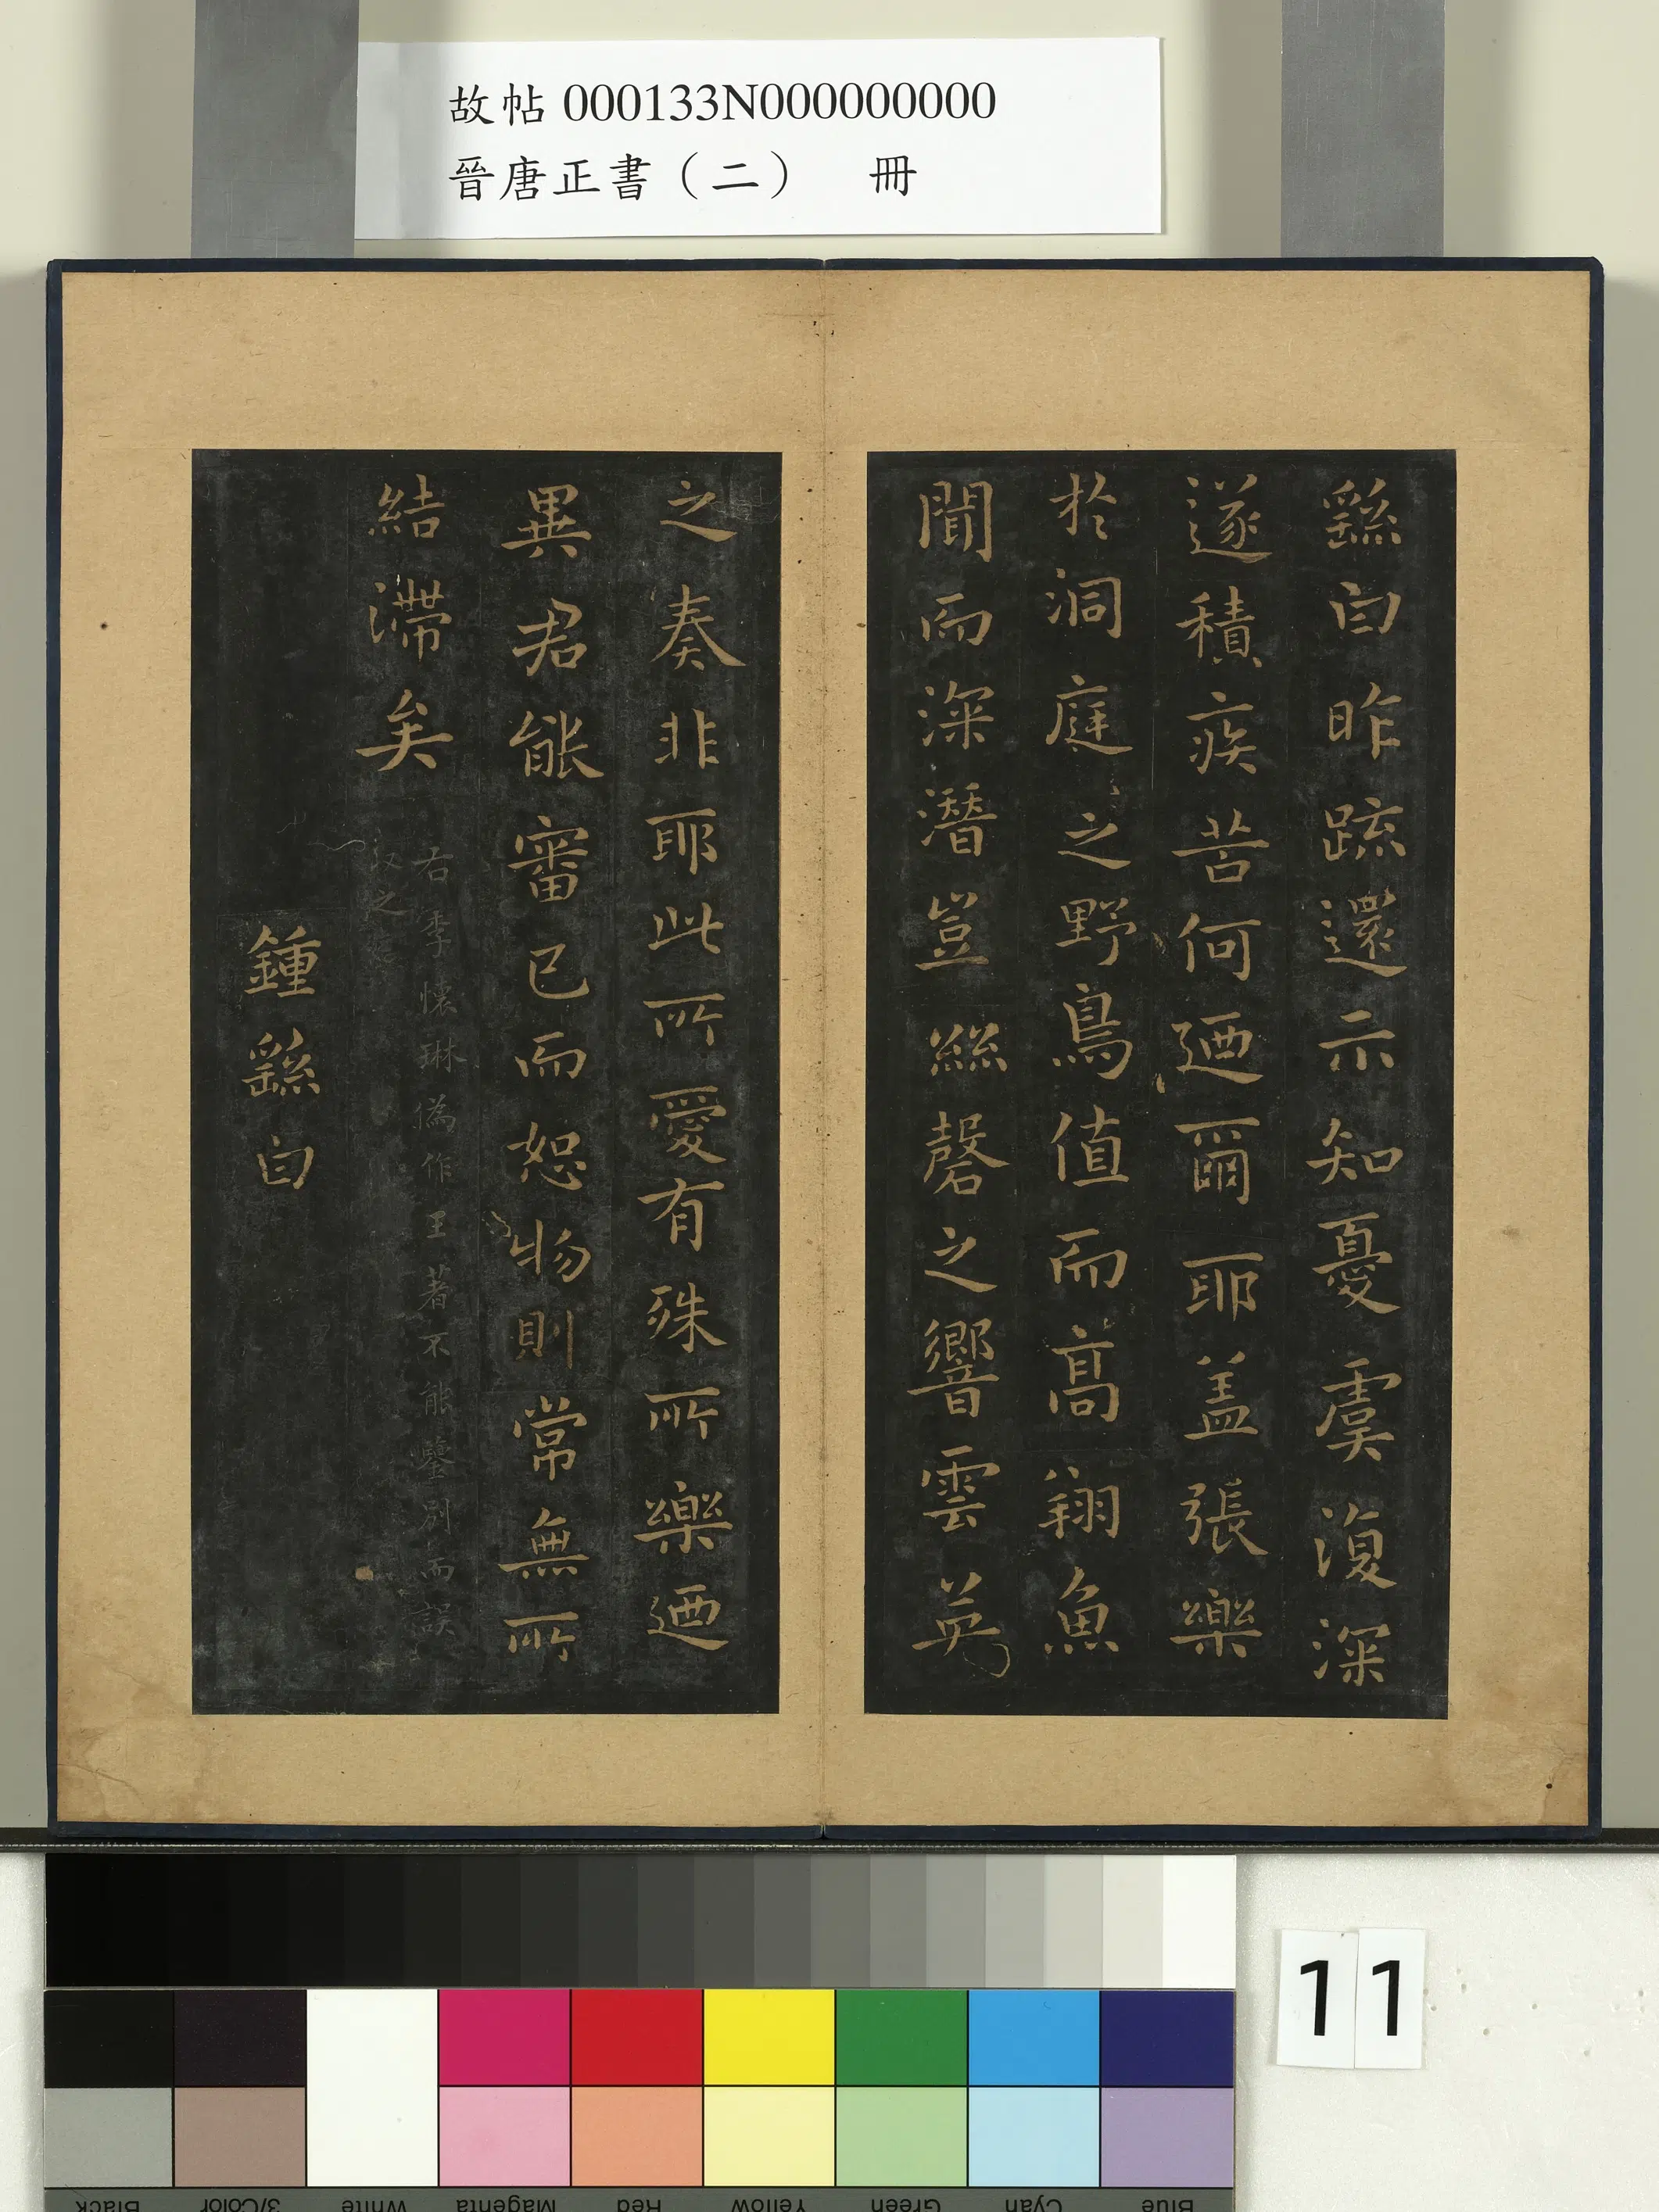 故帖 000133N000000000
晉唐正書（二） 冊
繇白昨疏還示知憂虞復深
遂積疾苦何迺爾耶盖張樂
於洞庭之野鳥值而高翔魚
聞而深潛豈絲磬之響雲英
之奏非耶此所愛有殊所樂迺
異君能審己而恕物則常無所
結滯矣
右李懷琳偽作王著不能鑒別而誤
收之
鍾繇白
11
Black 3/Color White Magenta Red Yellow Green Cyan Blue